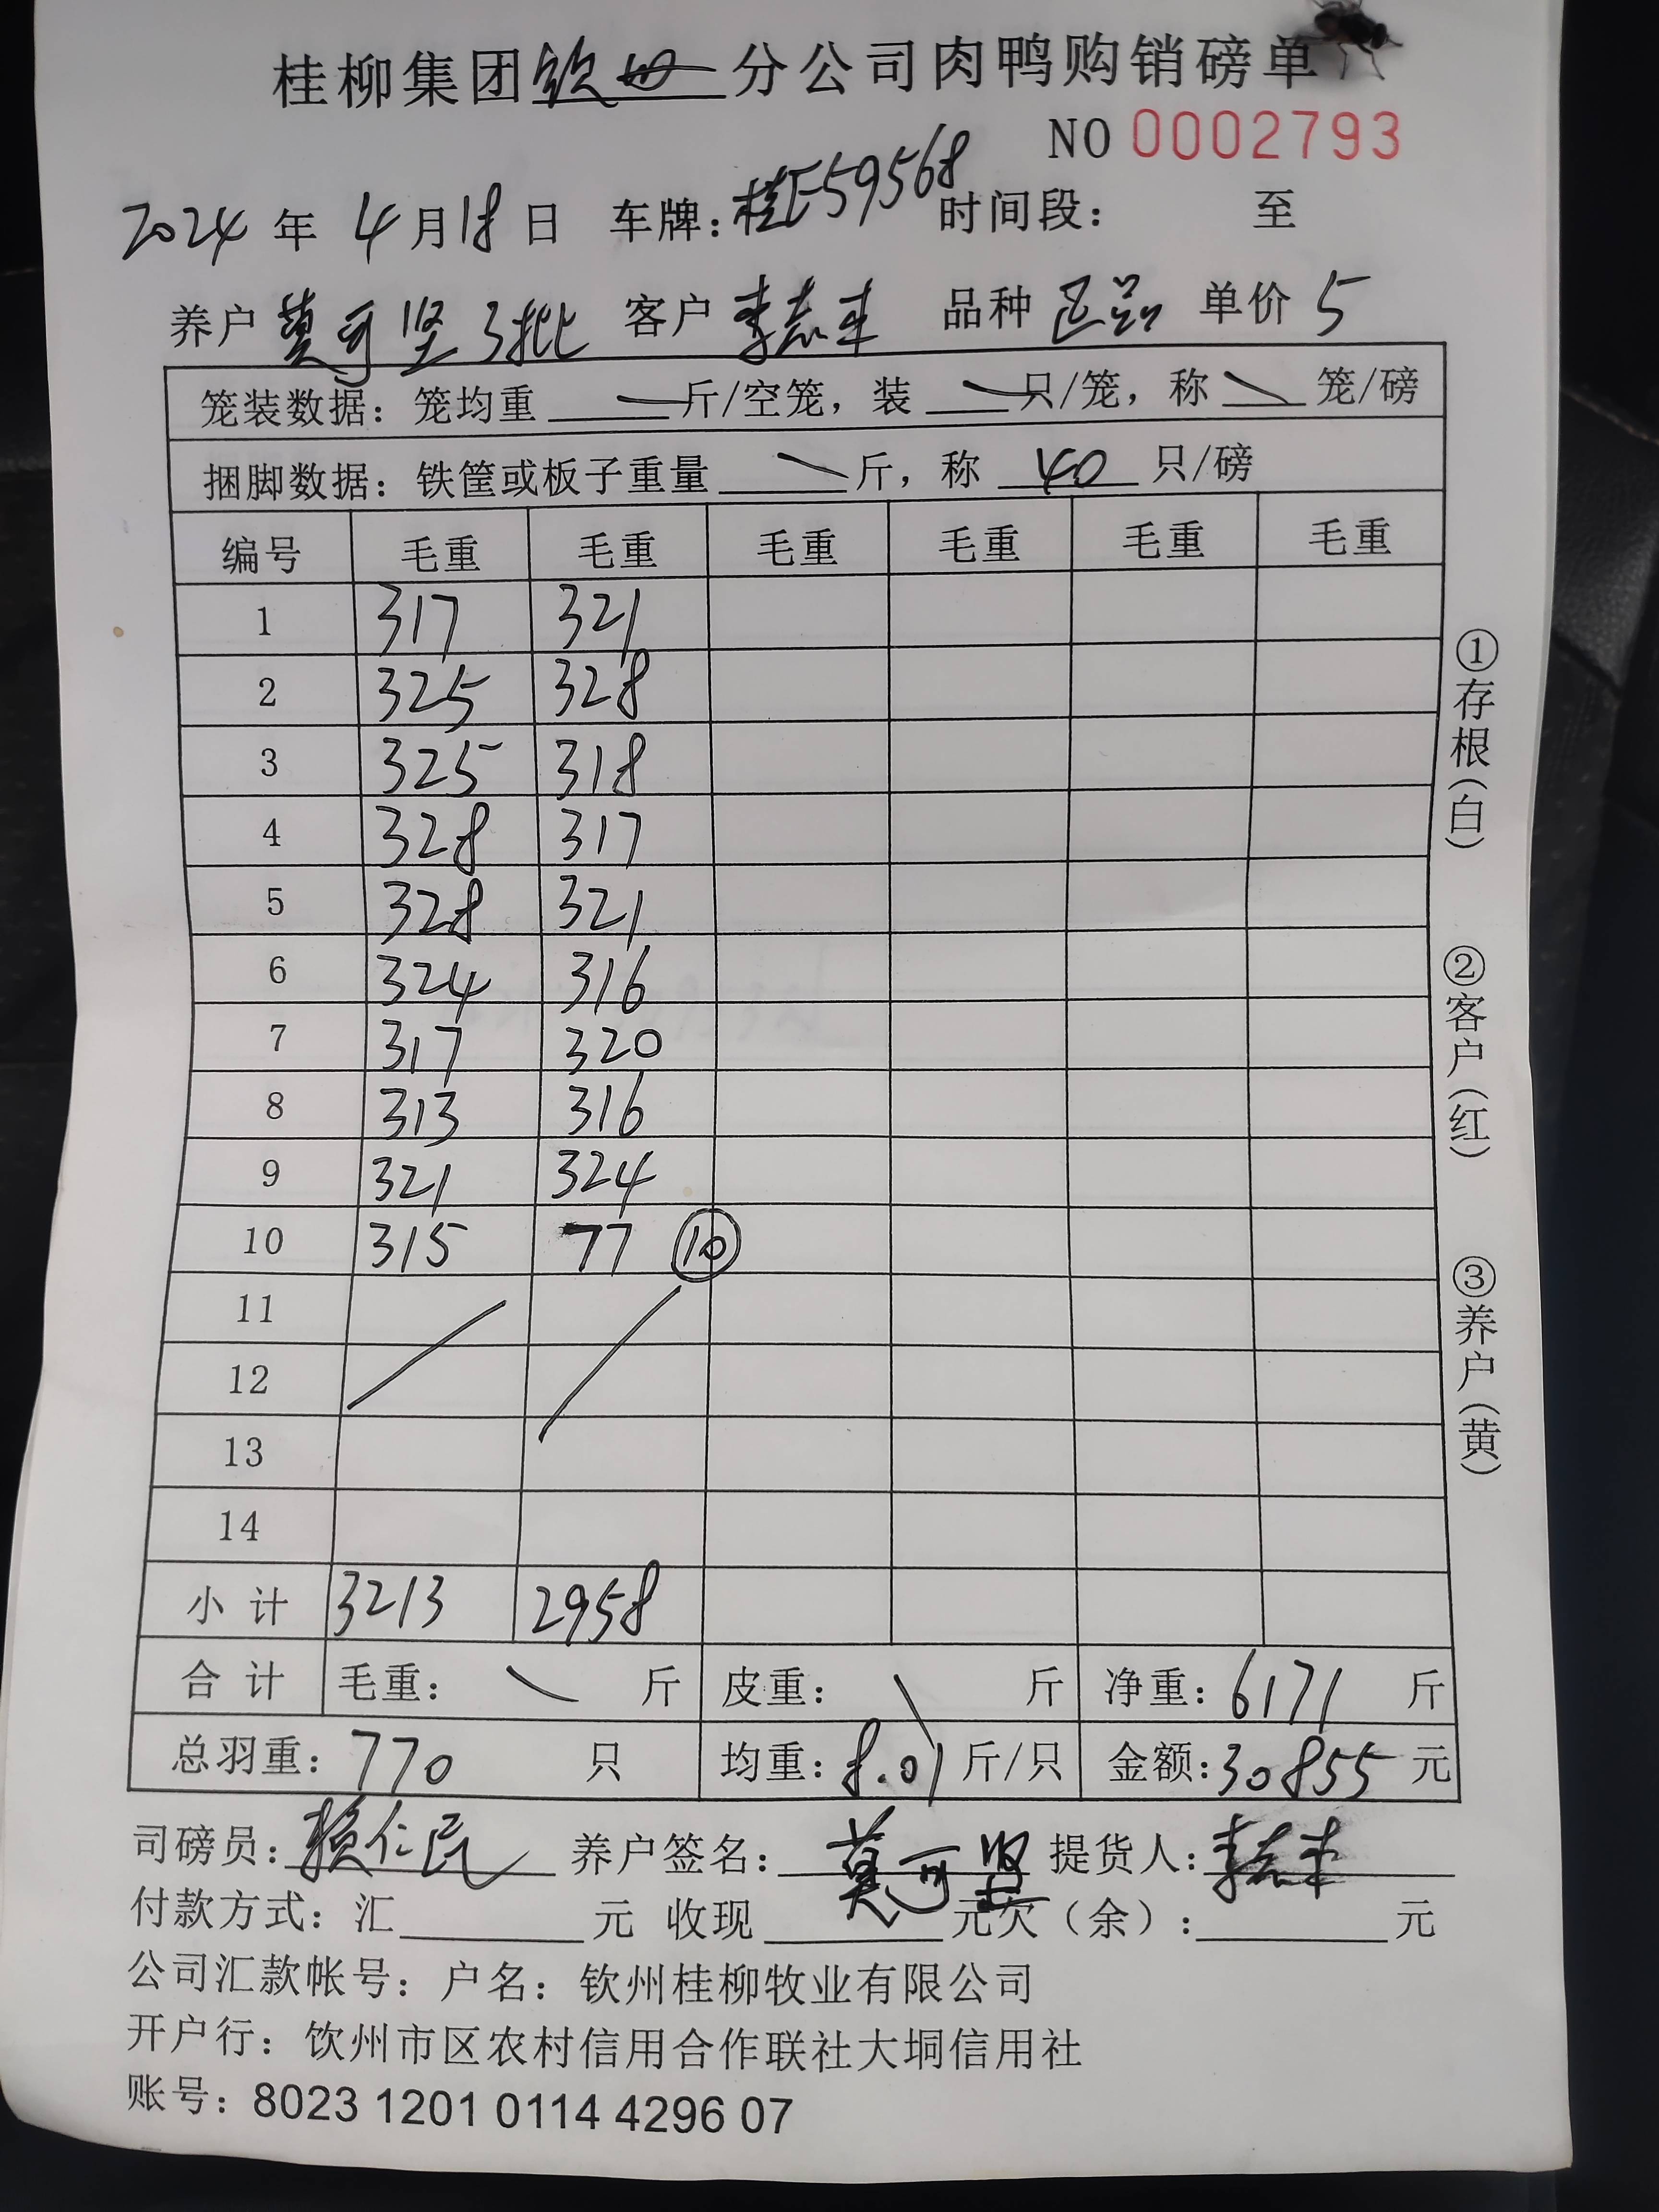 桂柳集团钦州分公司肉鸭购销磅单
NO 0002793
2024 年 4 月 18 日 车牌：桂E59568 时间段： 至
养户 莫可坚3批 客户 李志丰 品种 正品 单价 5
笼装数据：笼均重 斤/空笼，装 只/笼，称 笼/磅
捆脚数据：铁筐或板子重量 斤，称 40 只/磅
编号 毛重 毛重 毛重 毛重 毛重 毛重
1 317 321
2 325 328
3 325 318
4 328 317
5 328 321
6 324 316
7 317 320
8 313 316
9 321 324
10 315 77 ⑩
11
12
13
14
小计 3213 2958
合计 毛重： 斤 皮重： 斤 净重：6171 斤
总羽重：770 只 均重：8.01 斤/只 金额：30855 元
司磅员：赖仁民 养户签名：莫可坚 提货人：李志丰
付款方式：汇 元 收现 元欠（余）： 元
公司汇款帐号：户名：钦州桂柳牧业有限公司
开户行：饮州市区农村信用合作联社大垌信用社
账号：8023 1201 0114 4296 07
①存根（白）
②客户（红）
③养户（黄）